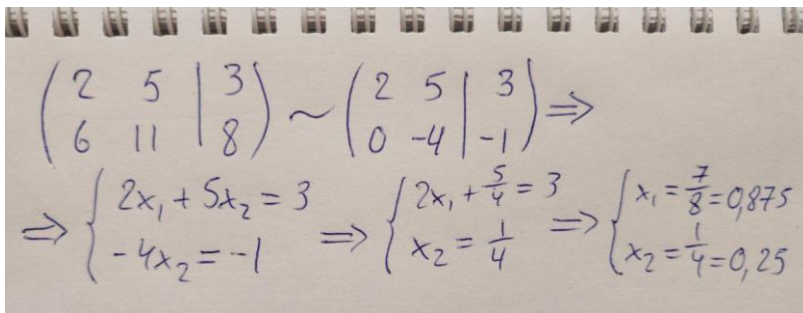 (2 5 | 3
6 11 | 8) ~ (2 5 | 3
0 -4 | -1) ⇒
⇒ { 2x₁ + 5x₂ = 3
-4x₂ = -1 ⇒ { 2x₁ + 5/4 = 3
x₂ = 1/4 ⇒ { x₁ = 7/8 = 0,875
x₂ = 1/4 = 0,25